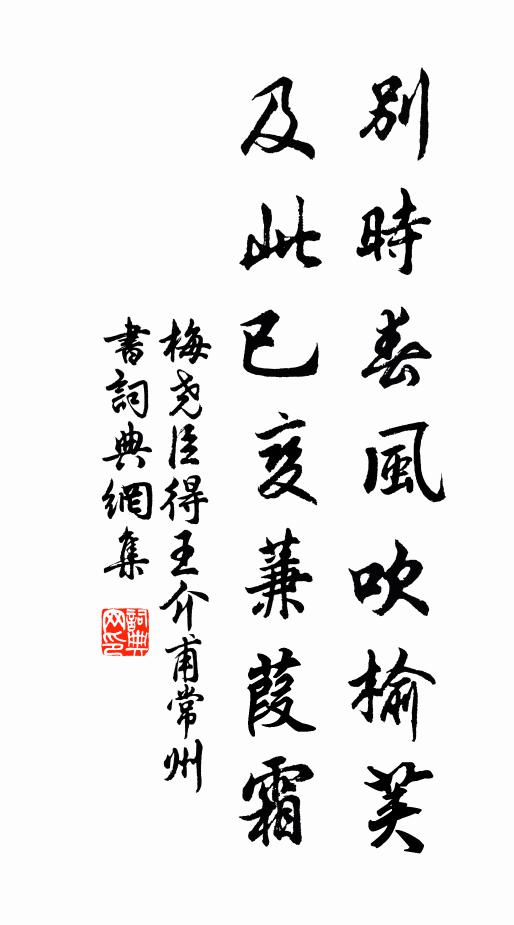 別時春風吹榆荚
及此已变蒹葭霜
梅尧臣得王介甫常州
書詞典網集
詞典
网印